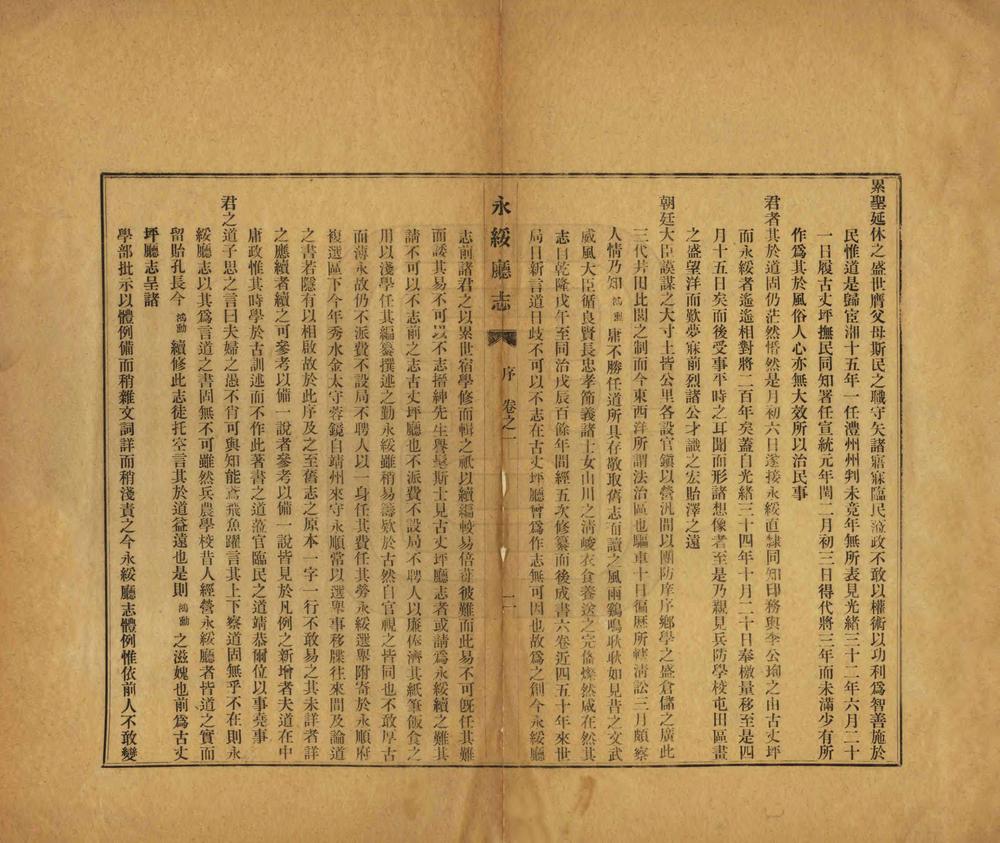 累聖延休之盛世膺父母斯民之職守矢諸寤寐臨民涖政不敢以權術以功利爲智善施於
民惟道是歸宦湘十五年一任澧州州判未竟年無所表見光緒三十二年六月二十
一日履古丈坪撫民同知署任宣統元年閏二月初三日得代將三年而未滿少有所
作爲其於風俗人心亦無大效所以治民事
君者其於道固仍茫然惛然是月初六日遂接永綏直隸同知印務與李公瑜之由古丈坪
而永綏者迤迤相對將二百年矣蓋自光緒三十四年十月二十日奉檄量移至是四
月十五日矣而後受事平時之耳聞而形諸想像者至是乃親見兵防學校屯田區畫
之盛望洋而歎夢寐前烈諸公才識之宏貽澤之遠
朝廷大臣謨謀之大寸土皆公里各設官鎭以營汎閒以團防庠序鄉學之盛倉儲之廣此
三代井田比閭之制而今東西洋所謂法治區也驅車十日徧歷所轄清訟三月頗察
人情乃知鴻勳庸不勝任道所具存敬取舊志而讀之風雨鷄鳴耿耿如見昔之文武
威風大臣循良賢長忠孝節義諸士女山川之清峻衣食養送之完備燦然咸在然其
志自乾隆戊午至同治戊辰百餘年間經五次修纂而後成書六卷近四五十年來世
局日新言道日歧不可以不志在古丈坪廳曾爲作志無可因也故爲之創今永綏廳
永綏廳志 序 卷之一 二
志前諸君之以累世宿學修而輯之祇以續編較易倍蓰彼難而此易不可旣任其難
而諉其易不可以不志搢紳先生譽髦斯士見古丈坪廳志者或請爲永綏續之難其
請不可以不志前之志古丈坪廳也不派費不設局不聘人以廉俸濟其紙筆飯食之
用以淺學任其編纂撰述之勤永綏雖稍易籌欵於古然自官視之皆同也不敢厚古
而薄永故仍不派費不設局不聘人以一身任其費任其勞永綏選舉附寄於永順府
複選區下今年秀水金太守蓉鏡自靖州來守永順常以選舉事移牒往來間及論道
之書若隱有以相啟故於此序及之至舊志之原本一字一行不敢易之其未詳者詳
之應續者續之可參考以備一說者參考以備一說皆見於凡例之新增者夫道在中
庸政惟其時學於古訓述而不作此著書之道涖官臨民之道靖恭爾位以事堯事
君之道子思之言曰夫婦之愚不肖可與知能鳶飛魚躍言其上下察道固無乎不在則永
綏廳志以其爲言道之書固無不可雖然兵農學校昔人經營永綏廳者皆道之實而
留貽孔長今鴻勳續修此志徒托空言其於道益遠也是則鴻勳之滋媿也前爲古丈
坪廳志呈諸
學部批示以體例備而稍雜文詞詳而稍淺責之今永綏廳志體例惟依前人不敢變